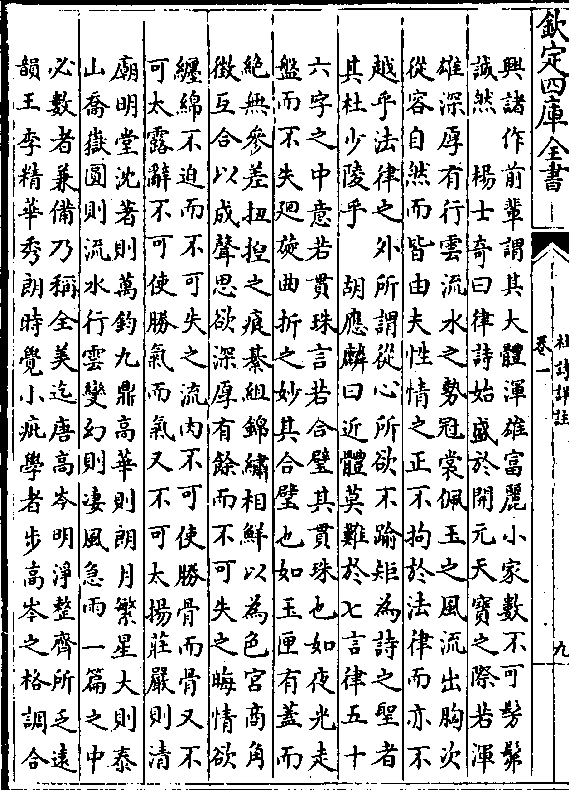 欽定四庫全書
杜詩詳註
卷一
九
興諸作前輩謂其大體渾雄富麗小家數不可髣髴
誠然　楊士奇曰律詩始盛於開元天寶之際若渾
雄深厚有行雲流水之勢冠裳佩玉之風流出胸次
從容自然而皆由夫性情之正不拘於法律而亦不
越乎法律之外所謂從心所欲不踰矩為詩之聖者
其杜少陵乎　胡應麟曰近體莫難於七言律五十
六字之中意若貫珠言若合璧其貫珠也如夜光走
盤而不失廻旋曲折之妙其合璧也如玉匣有蓋而
絕無參差扭揑之痕綦組錦繡相鮮以為色宮商角
徵互合以成聲思欲深厚有餘而不可失之晦情欲
纏綿不迫而不可失之流肉不可使勝骨而骨又不
可太露辭不可使勝氣而氣又不可太揚莊嚴則清
廟明堂沈著則萬鈞九鼎高華則朗月繁星大則泰
山喬嶽圓則流水行雲變幻則凄風急雨一篇之中
必數者兼備乃稱全美迄唐高岑明淨整齊所乏遠
韻王李精華秀朗時覺小疵學者步高岑之格調合